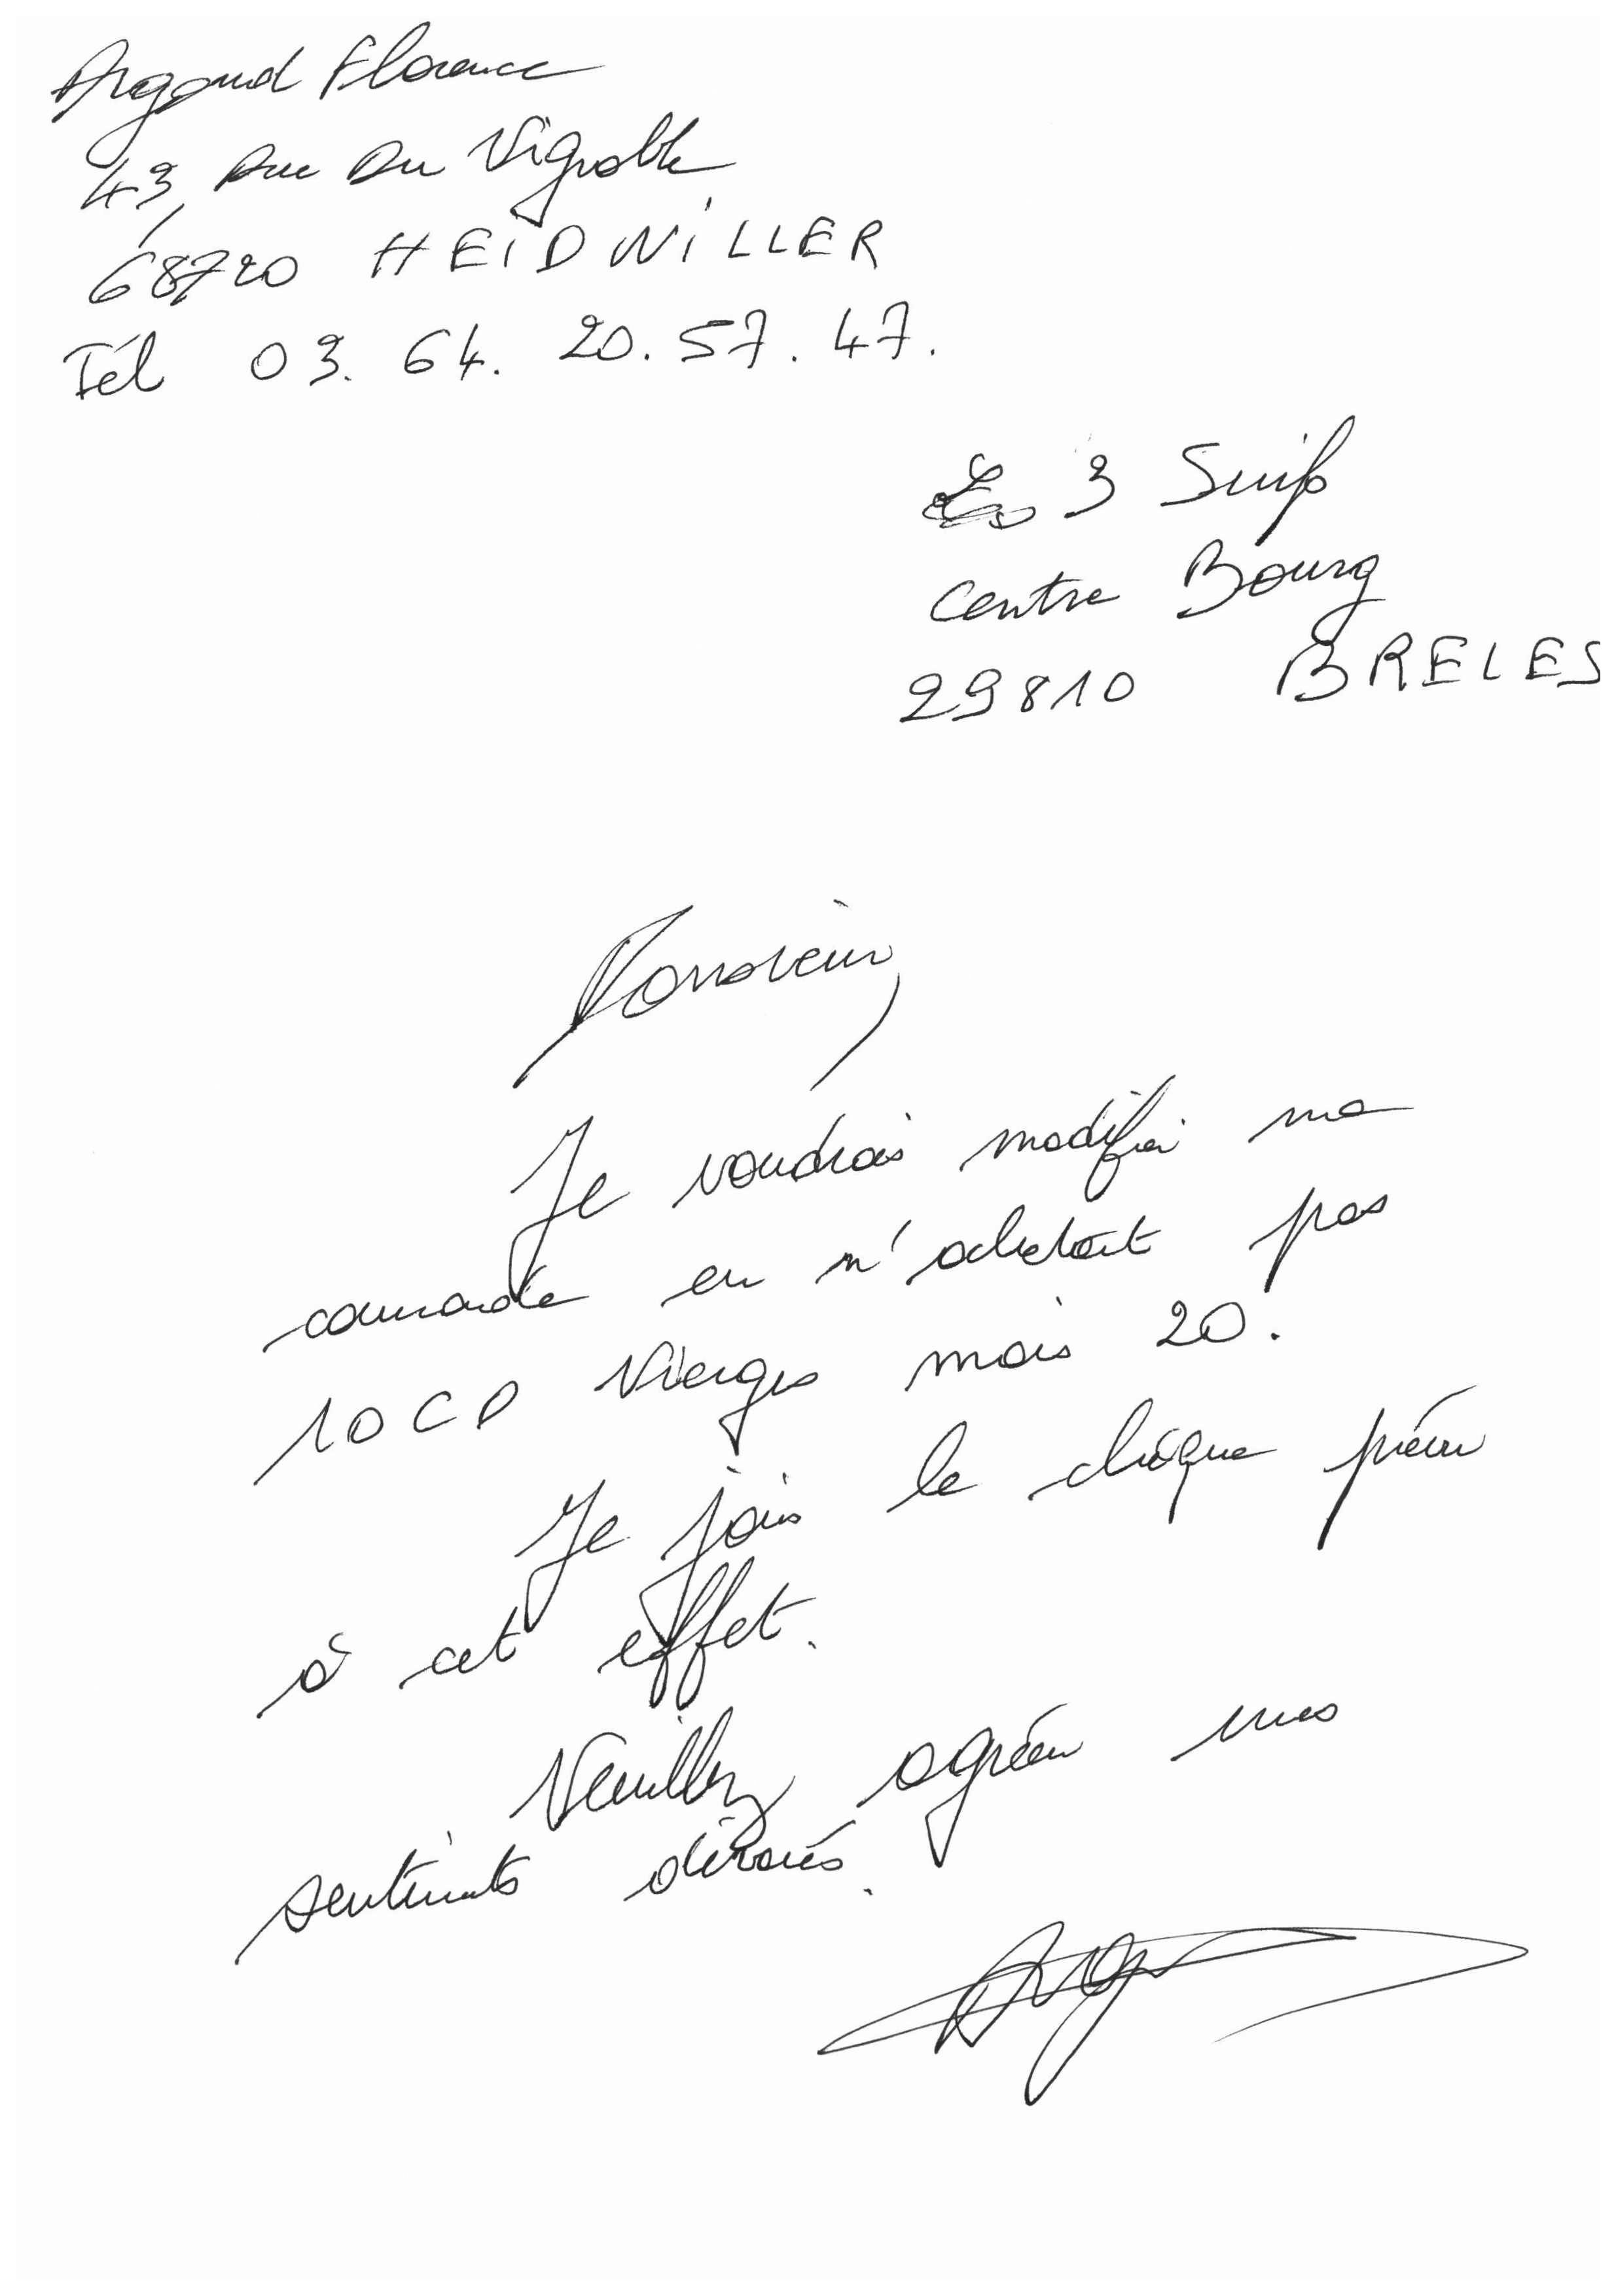 Argand Florence
43, Rue Du Vignoble
68720 HEIDWILLER
Tél 03. 64. 20. 57. 47.
Les 3 Suiss
Centre Bourg
29810 BRELES
Monsieur,
Je voudrais modifier ma
commande en n'achetant pas
10 CD Vierges mais 20.
Je joins le chèque prévu
à cet effet.
Veuillez agréer mes
sentiments dévoués.